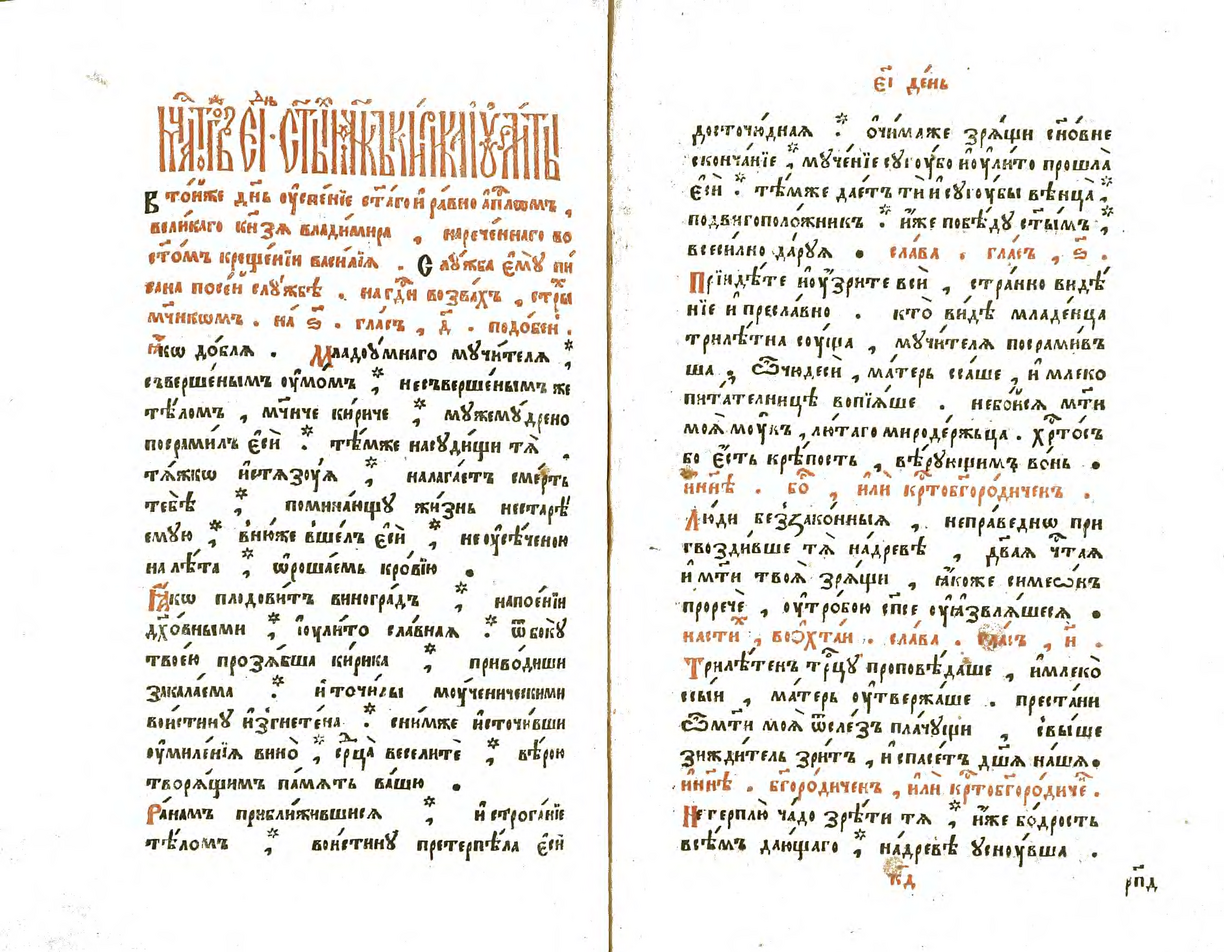 В то́йже дн҃ь ᲂу҆спе́нїе ст҃а́го и҆ ра́вно а҆пⷭ҇лѡмъ ,
вели́каго кн҃ѕѧ влади́мира , нарече́ннаго во
ст҃о́мъ креще́нїи васи́лїѧ . Слꙋ́жба є҆мꙋ̀ пи́
сана посе́й слꙋ́жбѣ . на гдⷭ҇и возва́хъ , стрⷯы
мч҃нкѡмъ . на̀ ѕ҃ . гла́съ , д҃ . подо́бенъ .
Ꙗ҆́кѡ до́блѧ . Младоꙋ́мнаго мꙋчи́телѧ *҆
съверше́нымъ ᲂу҆мо́мъ *, несъверше́нымъ же
тѣ́ломъ , мч҃нче ки́риче *, мꙋжемꙋ́дрено
посрами́лъ є҆сѝ *. тѣ́мже насꙋди́щи тѧ̀ ,
тѧ́жкѡ и҆стѧзоꙋ́ѧ *, налага́етъ сме́рть
тебѣ̀ *, помина́ющꙋ жи́знь нестарѣ́
емꙋю *, в̾ню́же вше́лъ є҆сѝ *, не ᲂу҆сѣ́ченою
на лѣ́та *, ѡ҆роша́емь кро́вїю .
Ꙗ҆́кѡ плодови́тъ виногра́дъ *, напое́нїи
дх҃о́вными *, і҆оули́то сла́внаѧ *. ѿ бокꙋ̀
твоею̀ прозѧ́бша ки́рика *, приво́диши
закала́ема *. и҆ точи́лы моꙋ́ченическими
вои́стинꙋ и҆згнете́на *. сни́мже и҆сточи́вши
ᲂу҆миле́нїѧ вино̀ *, срⷣца̀ весели́те *, вѣ́рою
творѧ́щимъ па́мѧть ва́шю .
Ра́намъ прибли́жившисѧ *, и҆ строга́нїе
тѣ́ломъ *, вои́стинꙋ претерпѣ́ла є҆сѝ
є҃і де́нь
досточю́днаѧ *. ѻ҆чи́маже зрѧ́щи сн҃о́вне
сконча́нїе *, мꙋче́нїе сꙋгоꙋ́бо і҆оули́то прошла̀
є҆сѝ *. тѣ́мже дае́тъ ти и҆ сꙋгоꙋ́бы вѣнца̀ *,
подвигополо́жникъ *. и҆́же побѣ́дꙋ ст҃ы́мъ *,
всеси́лно да́рꙋѧ . сла́ва . гла́съ , ѕ҃ .
Прїидѣ́те и҆ оꙋ҆́зрите всѝ , стра́нно видѣ́
нїе и҆ пресла́вно . кто̀ ви́дѣ младе́нца
трилѣ́тна соꙋ́ща , мꙋчи́телѧ посрами́въ
ша , Ѽчюдесѝ , ма́терь сса́ше , и҆ млеко
пита́телницѣ вопїѧ́ше . небо́йсѧ мт҃и
моѧ̀ моꙋ́къ , лю́таго мироде́ржьца . хрⷭ҇то́съ
бо є҆́сть крѣ́пость , вѣ́рꙋющимъ во́нь .
и҆ нн҃ѣ . бо҃ , и҆лѝ крⷭ҇тобг҃оро́диченъ .
Лю́ди беззако́нныѧ , непра́веднѡ при
гвозди́вше тѧ̀ на́древѣ , дв҃аѧ чт҃аѧ
и҆ мт҃и твоѧ̀ зрѧ́щи , ꙗ҆́коже симеѡ́нъ
проречѐ , ᲂу҆тро́бою сп҃се ᲂу҆ꙗ҆звлѧ́шесѧ .
насти́хⷯ , восхтаи́ . сла́ва . гла́съ , и҃ .
Трилѣ́тенъ трⷪ҇цꙋ проповѣ́даше , и҆млеко̀
ссы́й , ма́терь ᲂу҆твержа́ше . преста́ни
Ѽмт҃и моѧ̀ ѿсле́зъ пла́чꙋщи , свы́ше
зижди́тель зри́тъ , и҆ спасе́тъ дш҃ѧ на́шѧ .
и҆ нн҃ѣ . бг҃оро́диченъ , и҆лѝ крⷭ҇тобг҃оро́диче .
Не терплю̀ ча́до зрѣ́ти тѧ *, и҆́же бо́дрость
всѣ́мъ даю́щаго *, на́древѣ ᲂу҆сноꙋ́вша .
к҃д
рп҃д